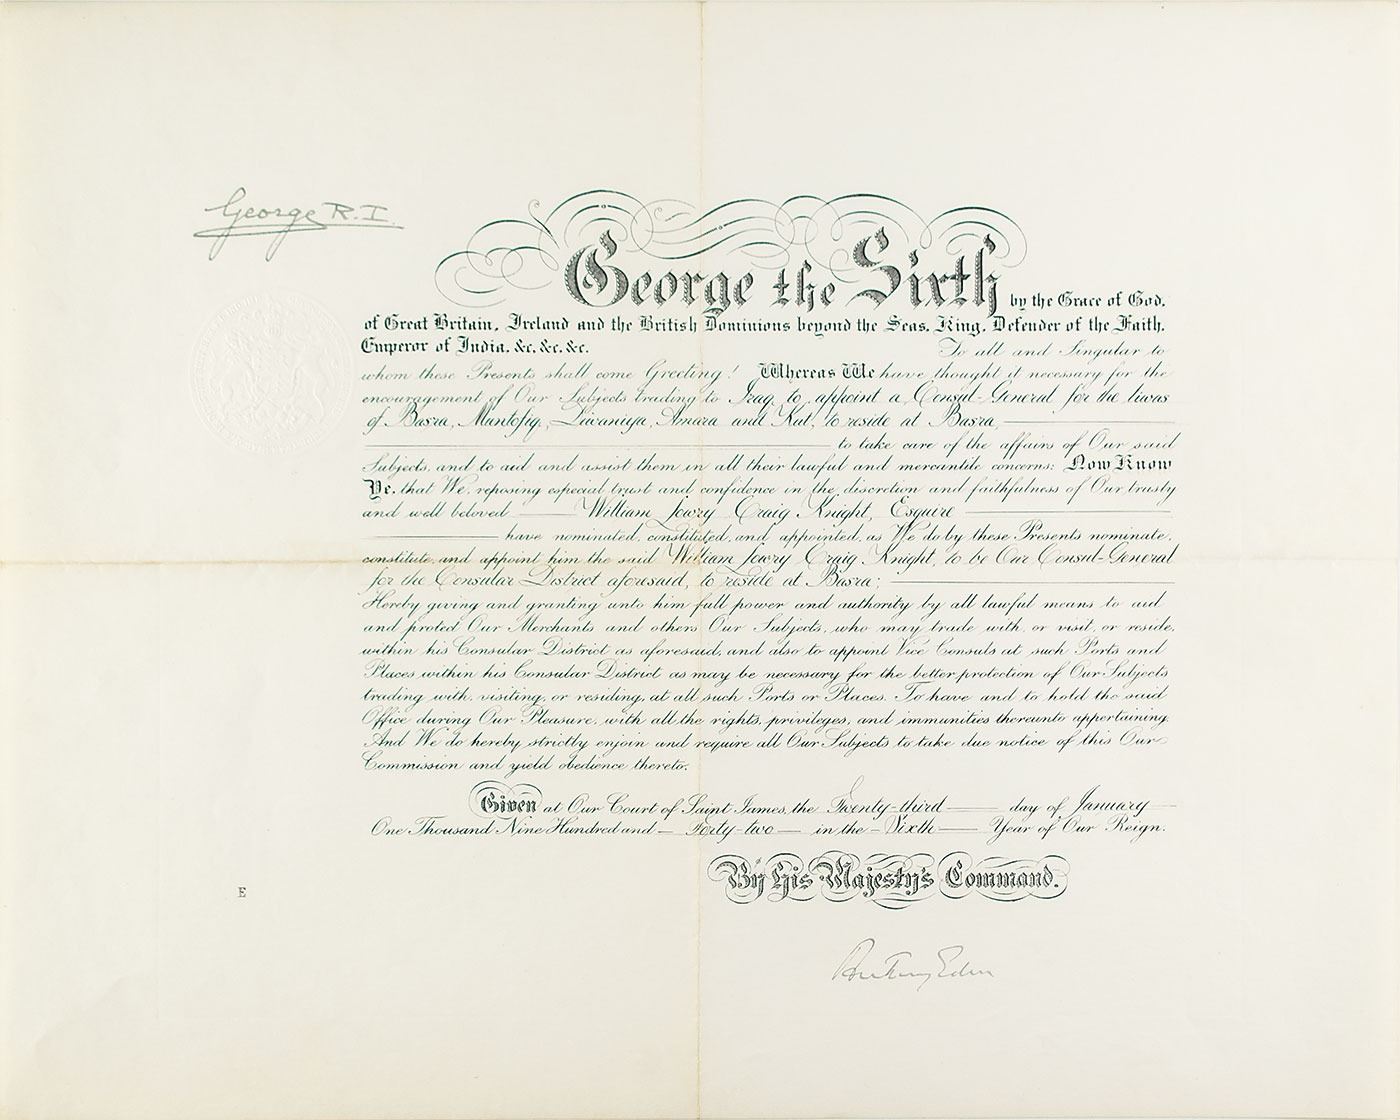 George R.I.
George the Sixth by the Grace of God,
of Great Britain, Ireland and the British Dominions beyond the Seas, King, Defender of the Faith,
Emperor of India, &c. &c. &c. To all and Singular to
whom these Presents shall come Greeting! Whereas We have thought it necessary for the
encouragement of Our Subjects trading to Iraq to appoint a Consul-General for the liwas
of Basra, Muntafiq, Diwaniya, Amara and Kut, to reside at Basra,
to take care of the affairs of Our said
Subjects, and to aid and assist them in all their lawful and mercantile concerns: Now Know
Ye, that We, reposing especial trust and confidence in the discretion and faithfulness of Our trusty
and well beloved William Lowry Craig Knight, Esquire
have nominated, constituted, and appointed, as We do by these Presents nominate,
constitute, and appoint him the said William Lowry Craig Knight, to be Our Consul-General
for the Consular District aforesaid, to reside at Basra;
Hereby giving and granting unto him full power and authority by all lawful means to aid
and protect Our Merchants and others Our Subjects, who may trade with, or visit, or reside,
within his Consular District as aforesaid, and also to appoint Vice Consuls at such Ports and
Places within his Consular District as may be necessary for the better protection of Our Subjects
trading with, visiting, or residing, at all such Ports or Places. To have and to hold the said
Office during Our Pleasure, with all the rights, privileges, and immunities thereunto appertaining.
And We do hereby strictly enjoin and require all Our Subjects to take due notice of this Our
Commission and yield obedience thereto.
Given at Our Court of Saint James, the Twenty-third day of January
One Thousand Nine Hundred and Forty-two in the Sixth Year of Our Reign.
By His Majesty's Command.
E
Anthony Eden